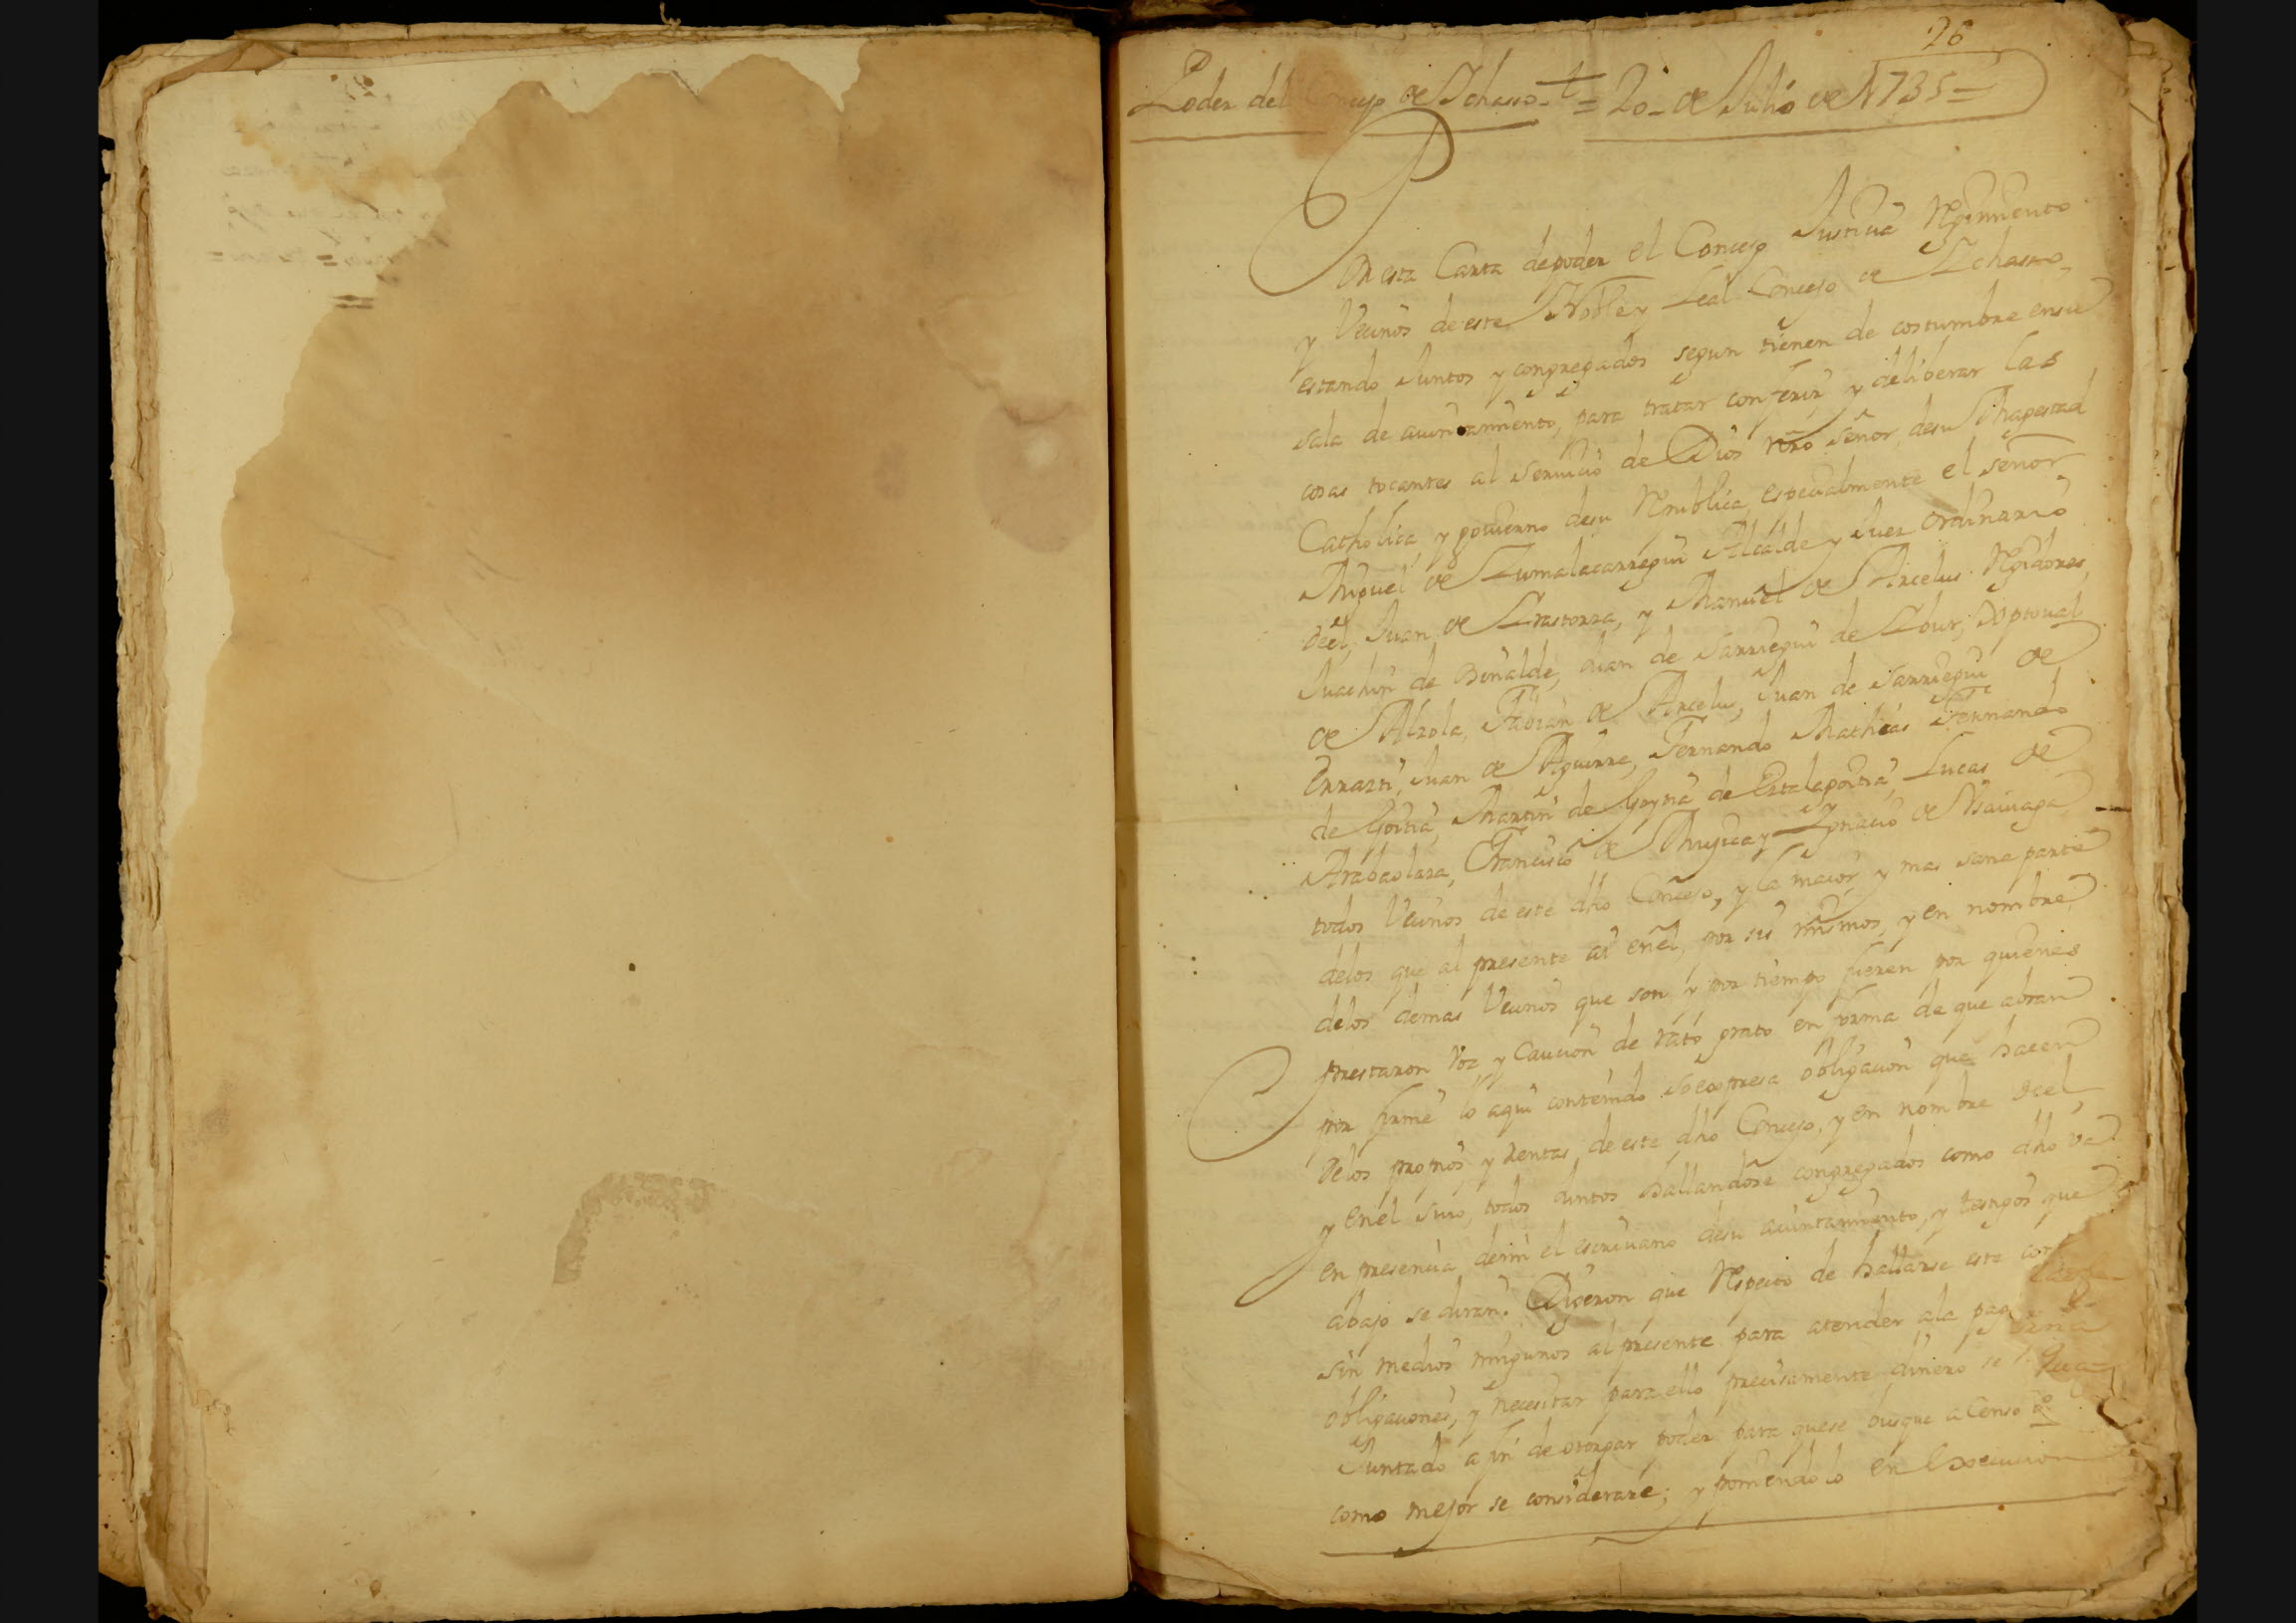 26
Poder del Concejo de Ichasso = 20 = de Julio de 1735 =
Por esta Carta depoder el Concejo Justicia Rejimiento
y Vecinos de este Noble y Leal Concejo de Ichasso,
estando Juntos y congregados segun tienen de costumbre ensu
sala de aiuntamiento, para tratar conferir y deliberar las
cosas tocantes al servicio de Dios nro señor, desu Magestad
Catholica, y govierno desu Republica, especialmente el señor
Miguel de Zumalacarregui Alcalde y Juez ordinario
deel, Juan de Irastorza, y Manuel de Arcelus Rejidores,
Juachin de Benalde, Juan de Sarriegui de
de Alzola, Fabian de Arcelus, Juan de Sarriegui de
Errazti, Juan de Aguirre, Fernando Mathias Fernando
de Goitia, Martin de de Lucas de
Arabaolaza, Francisco de Mujica y Ignacio de
todos Vecinos de este dho Concejo, y la maior y mas sana parte
delos que al presente ai enel, por sus mismos, y en nombre
delos demas Vecinos que son y por tiempo fueren por quienes
prestaron voz y Caucion de rato grato en forma de que abran
por firme lo aqui contenido so expresa obligacion que hacen
delos propios y Rentas de este dho Concejo, y en nombre deel,
y enel suio, todos Juntos hallandose congregados como dho va
en presencia demi el escrivano desu aiuntamiento, y testigos que
abajo se diran: Dijeron que Respecto de hallarse este
sin medios ningunos al presente para atender ala
obligaciones, y necesitar para ello precisamente dinero se
Juntado a fin de otorgar poder para quese busque a Censo
como mejor se considerare; y poniendolo en Execucion